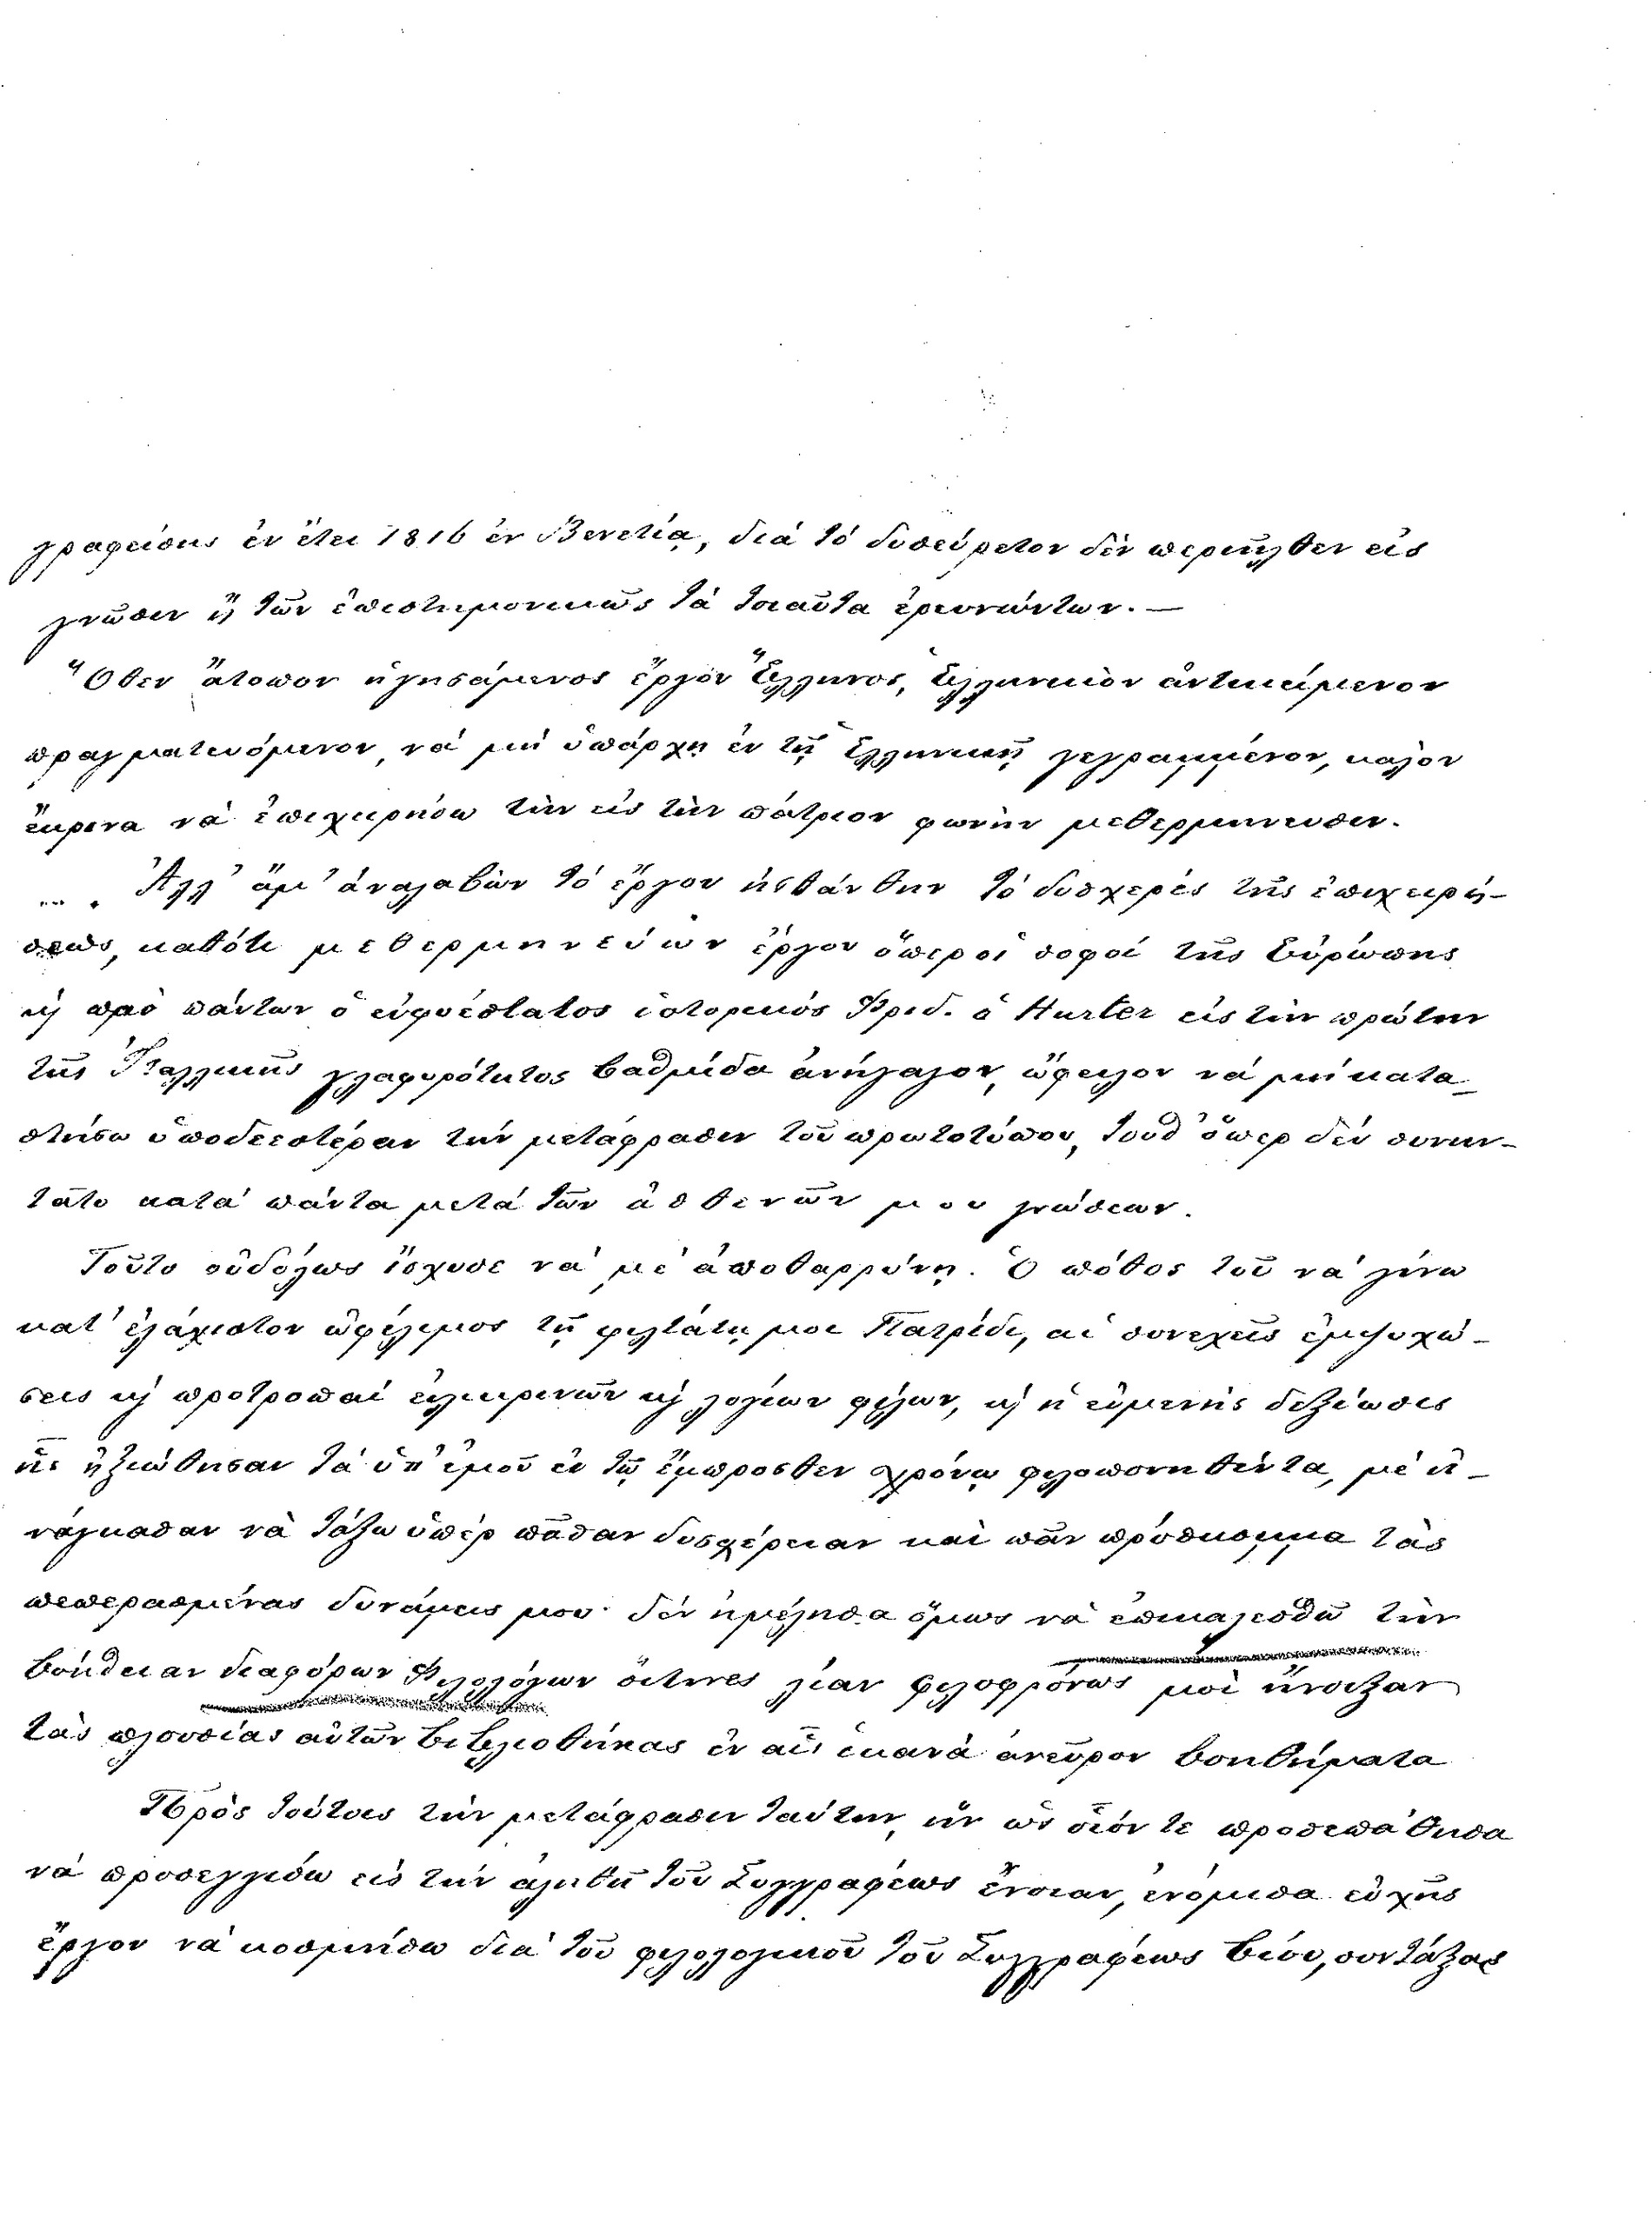 γραφείσης ἐν ἔτει 1816 ἐν Βενετίᾳ, διά τό δυσεύρετον δὲν περιῆλθεν εἰς
γνῶσιν ἢ τῶν ἐπιστημονικῶς τὰ τοιαῦτα ἐρευνώντων. —
Ὅθεν ἄτοπον ἡγησάμενος ἔργον Ἕλληνος, Ἑλληνικὸν ἀντικείμενον
πραγματευόμενον, νά μή ὑπάρχῃ ἐν τῇ Ἑλληνικῇ γεγραμμένον, καλὸν
ἔκρινα νὰ ἐπιχειρήσω τὴν εἰς τὴν πάτριον φωνὴν μεθερμήνευσιν.
... . Ἀλλ' ἅμ' ἀναλαβὼν τό ἔργον ᾐσθάνθην τό δυσχερές τῆς ἐπιχειρή-
σεως, καθότι μεθερμηνεύων ἔργον ὅπερ οἱ σοφοί τῆς Εὐρώπης
κ πρὸ πάντων ὁ εὐφυέστατος ἱστορικός Φριδ. ὁ Hurter εἰς τὴν πρώτην
τῆς Ἰταλλικῆς γλαφυρότητος βαθμίδα ἀνήγαγον, ὤφειλον νά μή κατα-
στήσω ὑποδεεστέραν τήν μετάφρασιν τοῦ πρωτοτύπου, τοῦθ' ὅπερ δέν συνην-
τᾶτο κατά πάντα μετά τῶν ἀσθενῶν μου γνώσεων.
Τοῦτο οὐδόλως ἴσχυσε νά μέ ἀποθαρρύνῃ. Ὁ πόθος τοῦ νά γίνω
κατ' ἐλάχιστον ὠφέλιμος τῇ φιλτάτῃ μοι Πατρίδι, αἱ συνεχεῖς ἐμψυχώ-
σεις κ προτροπαί εἰλικρινῶν κ λογίων φίλων, κ ἡ εὐμενής δεξίωσις
ἧς ἠξιώθησαν τά ὑπ' ἐμοῦ ἐν τῷ ἔμπροσθεν χρόνῳ φιλοπονηθέντα, μέ ἠ-
νάγκασαν νὰ τάξω ὑπέρ πᾶσαν δυσχέρειαν καὶ πᾶν πρόσκομμα τὰς
πεπερασμένας δυνάμεις μου· δέν ἠμέλησα ὅμως νὰ ἐπικαλεσθῶ τὴν
βοήθειαν διαφόρων Φιλολόγων οἵτινες λίαν φιλοφρόνως μοὶ ἤνοιξαν
τάς πλουσίας αὑτῶν βιβλιοθήκας ἐν αἷς ἱκανὰ ἀνεῦρον βοηθήματα
Πρὸς τούτοις τὴν μετάφρασιν ταύτην, ἣν ὡς οἷόν τε προσεπάθησα
νά προσεγγίσω εἰς τήν ἀληθῆ τοῦ Συγγραφέως ἔννοιαν, ἐνόμισα εὐχῆς
ἔργον νὰ κοσμήσω διά τοῦ φιλολογικοῦ τοῦ Συγγραφέως βίου, συντάξας